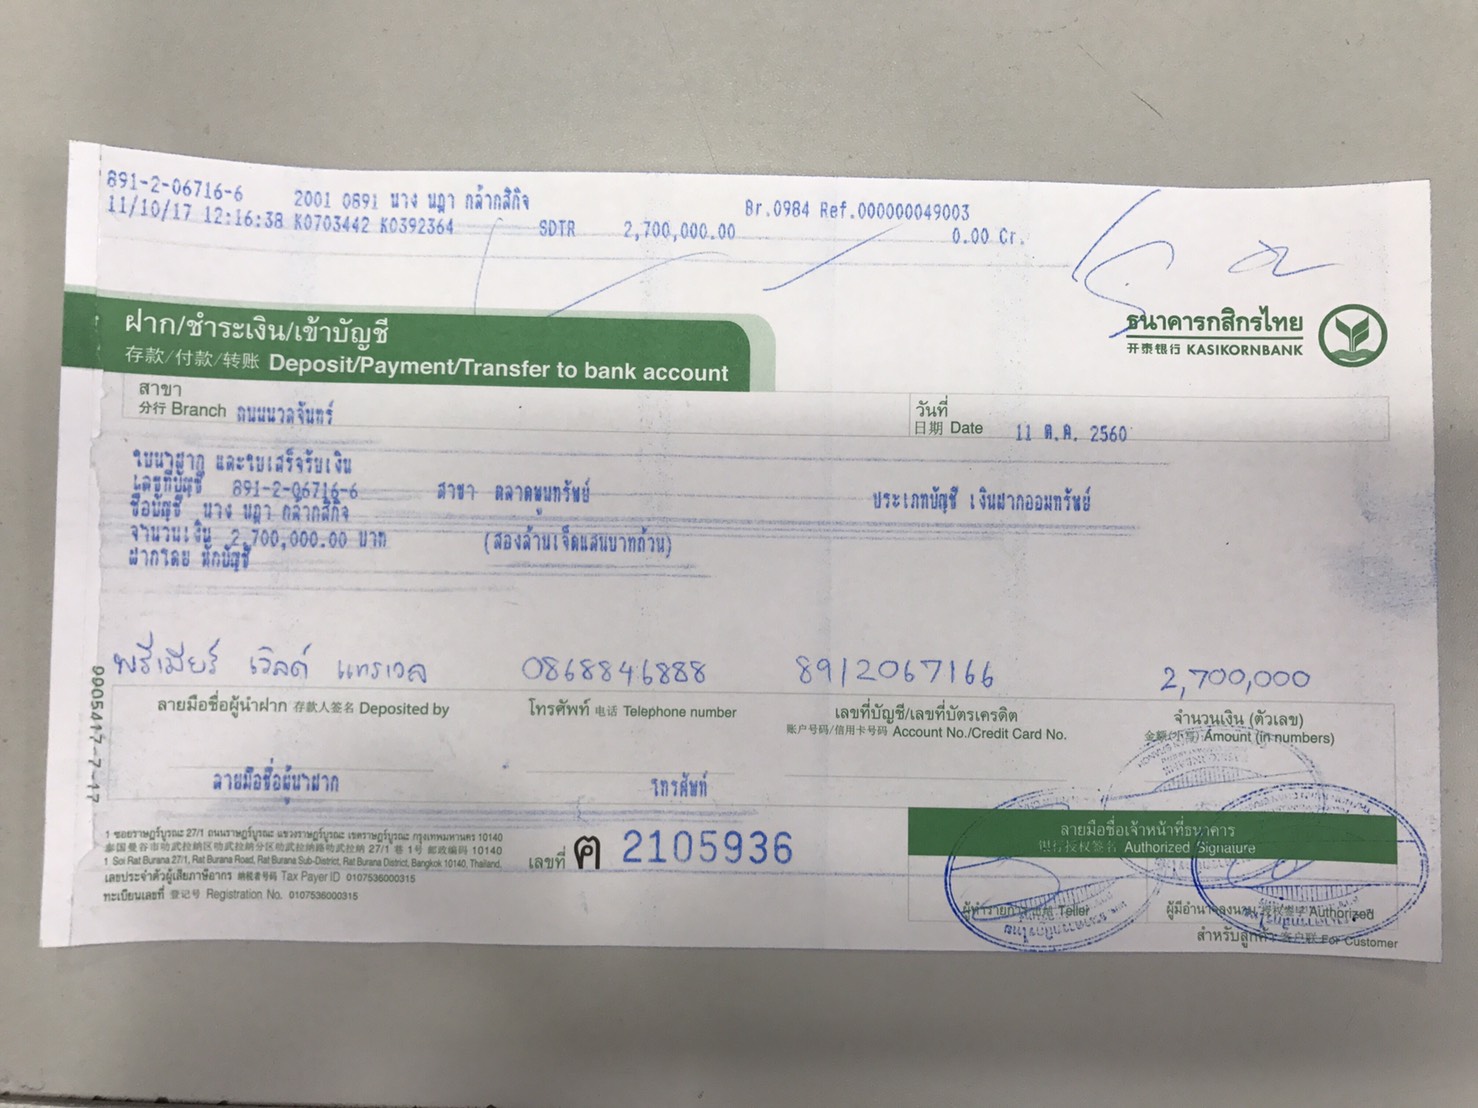 891-2-06716-6 2001 0891 นาง นฎา กล้ากสิกิจ Br.0984 Ref.000000049003
11/10/17 12:16:38 K0703442 K0392364 SDTR 2,700,000.00 0.00 Cr.
ฝาก/ชำระเงิน/เข้าบัญชี
存款/付款/转账 Deposit/Payment/Transfer to bank account
ธนาคารกสิกรไทย
开泰银行 KASIKORNBANK
สาขา
分行 Branch ถนนนวลจันทร์
วันที่
日期 Date 11 ต.ค. 2560
ใบนำฝาก และใบเสร็จรับเงิน
เลขที่บัญชี 891-2-06716-6 สาขา ตลาดพูนทรัพย์ ประเภทบัญชี เงินฝากออมทรัพย์
ชื่อบัญชี นาง นฎา กล้ากสิกิจ
จำนวนเงิน 2,700,000.00 บาท (สองล้านเจ็ดแสนบาทถ้วน)
ฝากโดย หักบัญชี
พรีเมียร์ เวิลด์ แทรเวล 0868846888 8912067166 2,700,000
ลายมือชื่อผู้นำฝาก 存款人签名 Deposited by
โทรศัพท์ 电话 Telephone number
เลขที่บัญชี/เลขที่บัตรเครดิต
账户号码/信用卡号码 Account No./Credit Card No.
จำนวนเงิน (ตัวเลข)
金额(小写) Amount (in numbers)
ลายมือชื่อผู้นำฝาก โทรศัพท์
1 ซอยราษฎร์บูรณะ 27/1 ถนนราษฎร์บูรณะ แขวงราษฎร์บูรณะ เขตราษฎร์บูรณะ กรุงเทพมหานคร 10140
泰国曼谷市叻武拉纳区叻武拉纳分区叻武拉纳路叻武拉纳 27/1 巷 1 号 邮政编码 10140
1 Soi Rat Burana 27/1, Rat Burana Road, Rat Burana Sub-District, Rat Burana District, Bangkok 10140, Thailand.
เลขประจำตัวผู้เสียภาษีอากร 纳税者号码 Tax Payer ID 0107536000315
ทะเบียนเลขที่ 登记号 Registration No. 0107536000315
เลขที่ ฅ 2105936
ลายมือชื่อเจ้าหน้าที่ธนาคาร
银行授权签名 Authorized Signature
ผู้ทำรายการ Teller
ผู้มีอำนาจลงนาม 授权签字 Authorized
สำหรับลูกค้า 客户联 For Customer